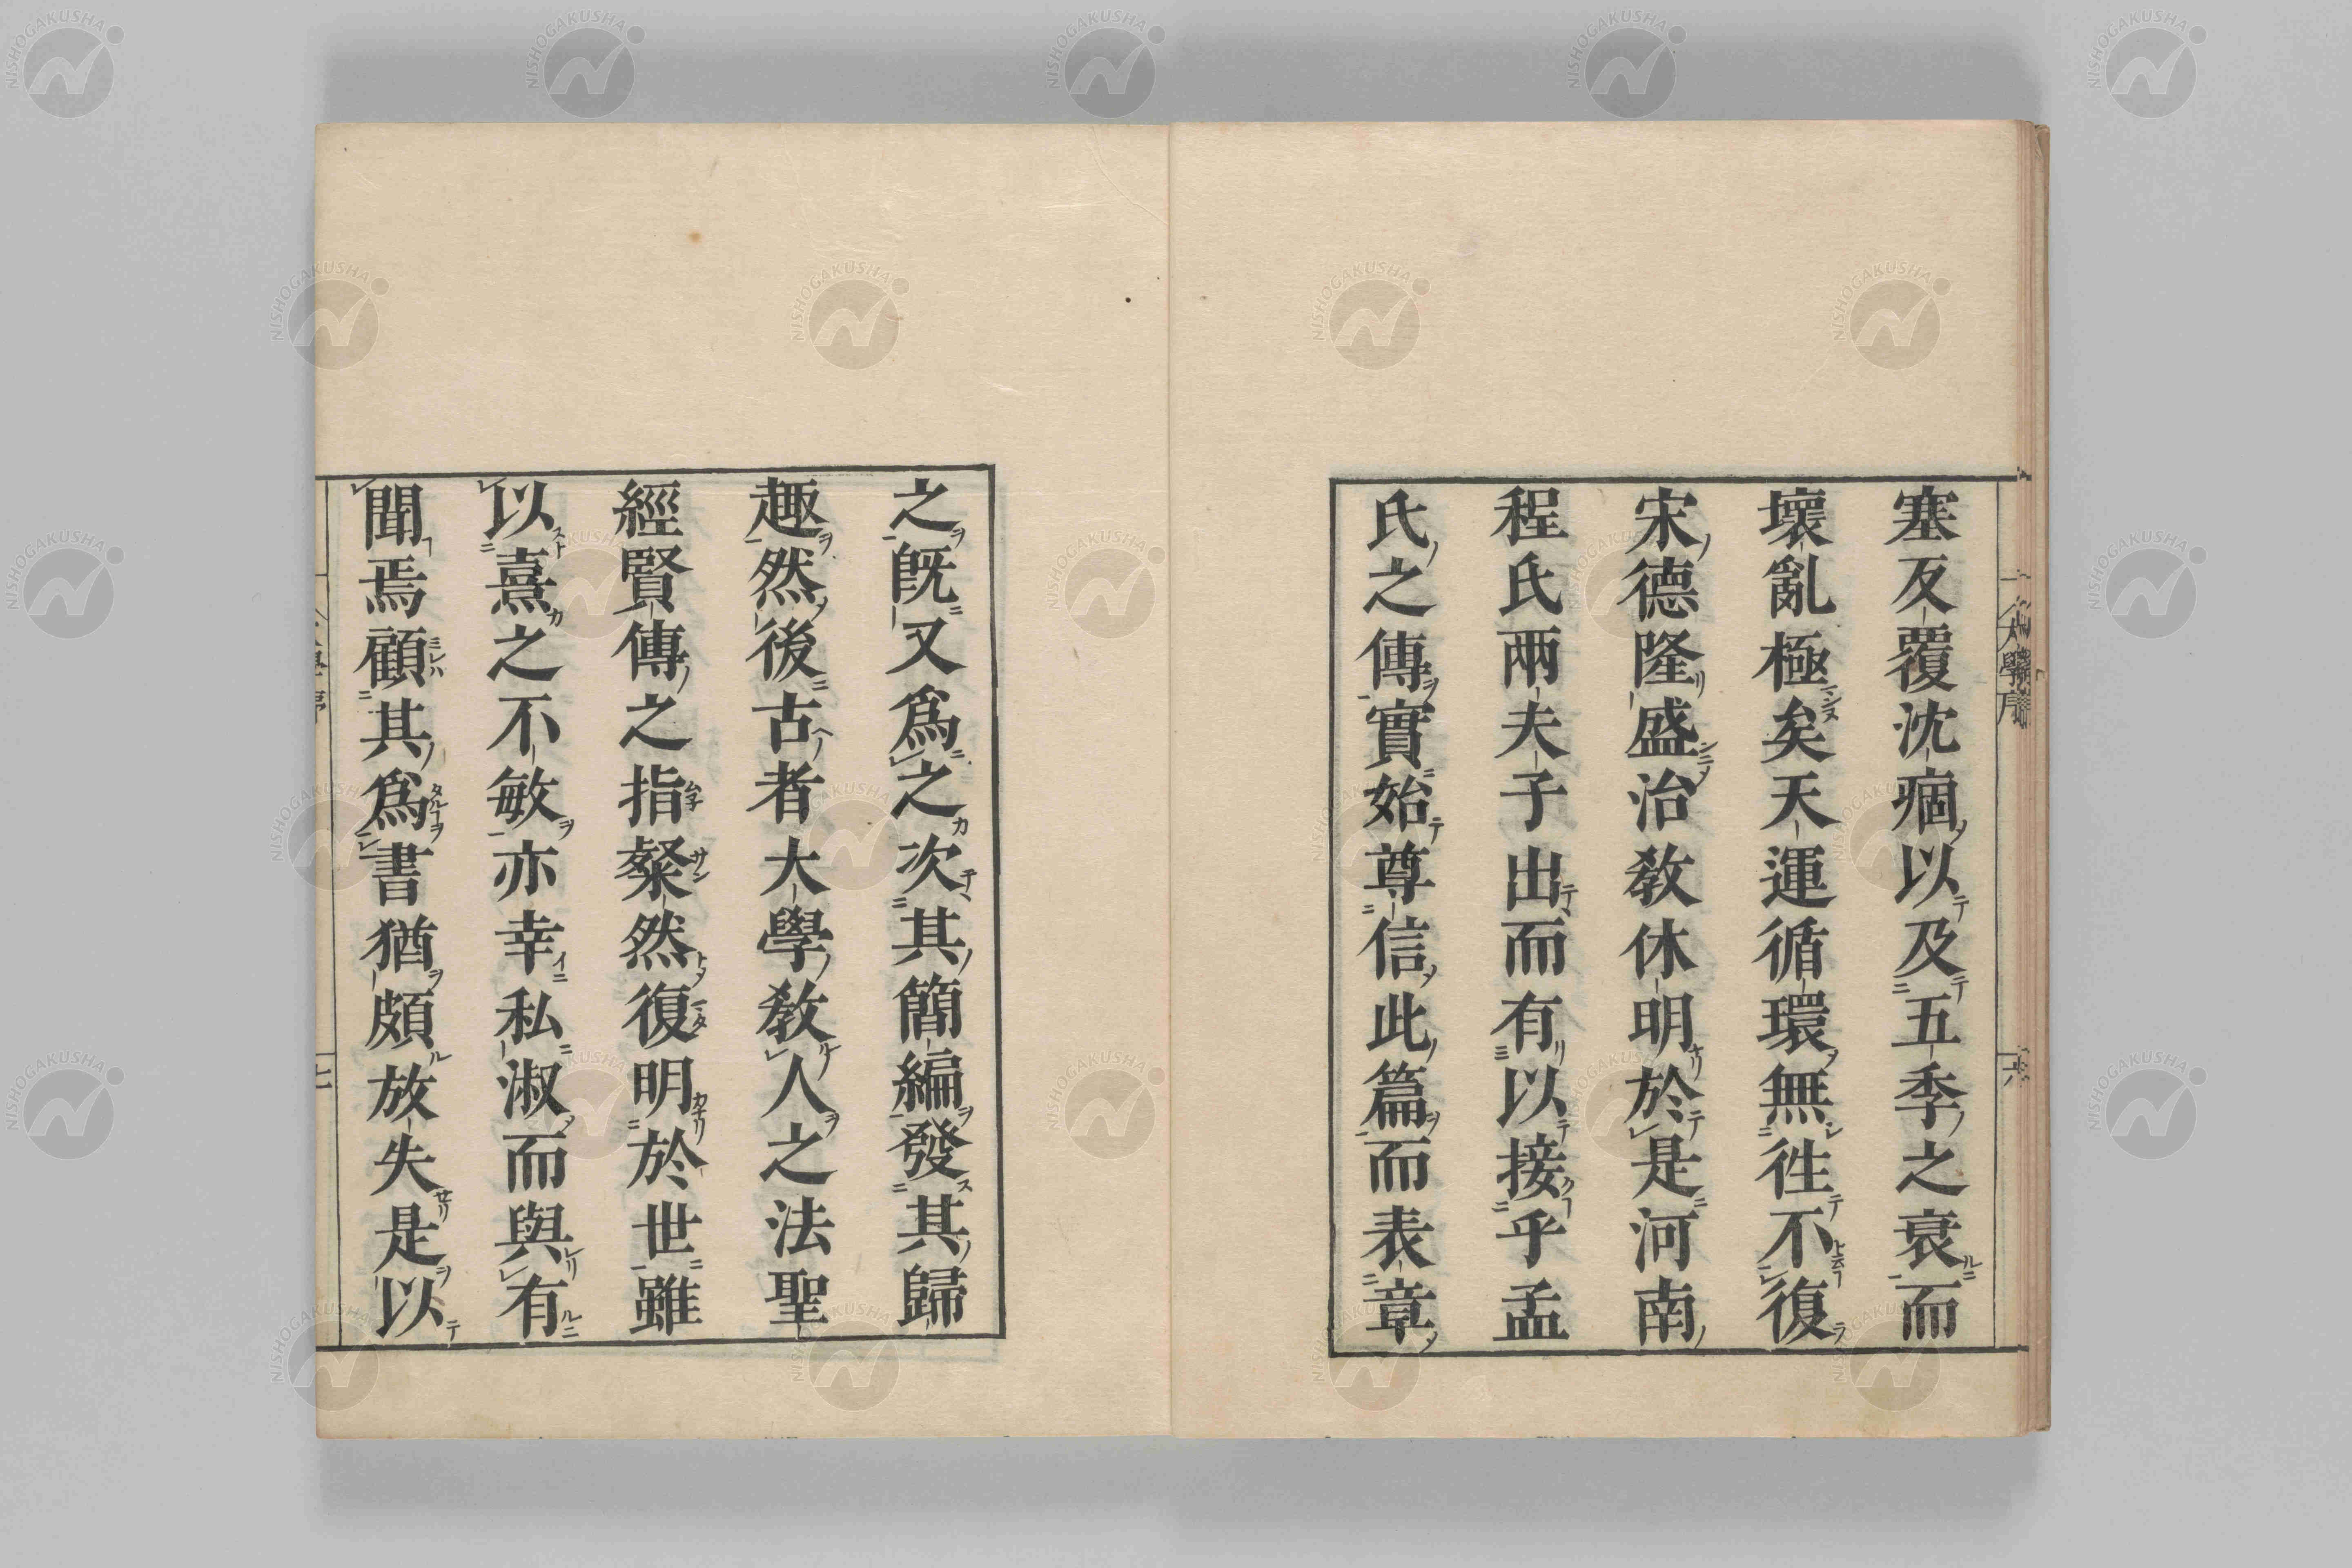 塞反覆沈痼以及五季之衰而
壞亂極矣天運循環無徃不復
宋德隆盛治敎休明於是河南
程氏兩夫子出而有以接乎孟
氏之傳實始尊信此篇而表章
之旣又爲之次其簡編發其歸
趣然後古者大學敎人之法聖
經賢傳之指粲然復明於世雖
以熹之不敏亦幸私淑而與有
聞焉顧其爲書猶頗放失是以
大學序
六
七
NISHOGAKUSHA